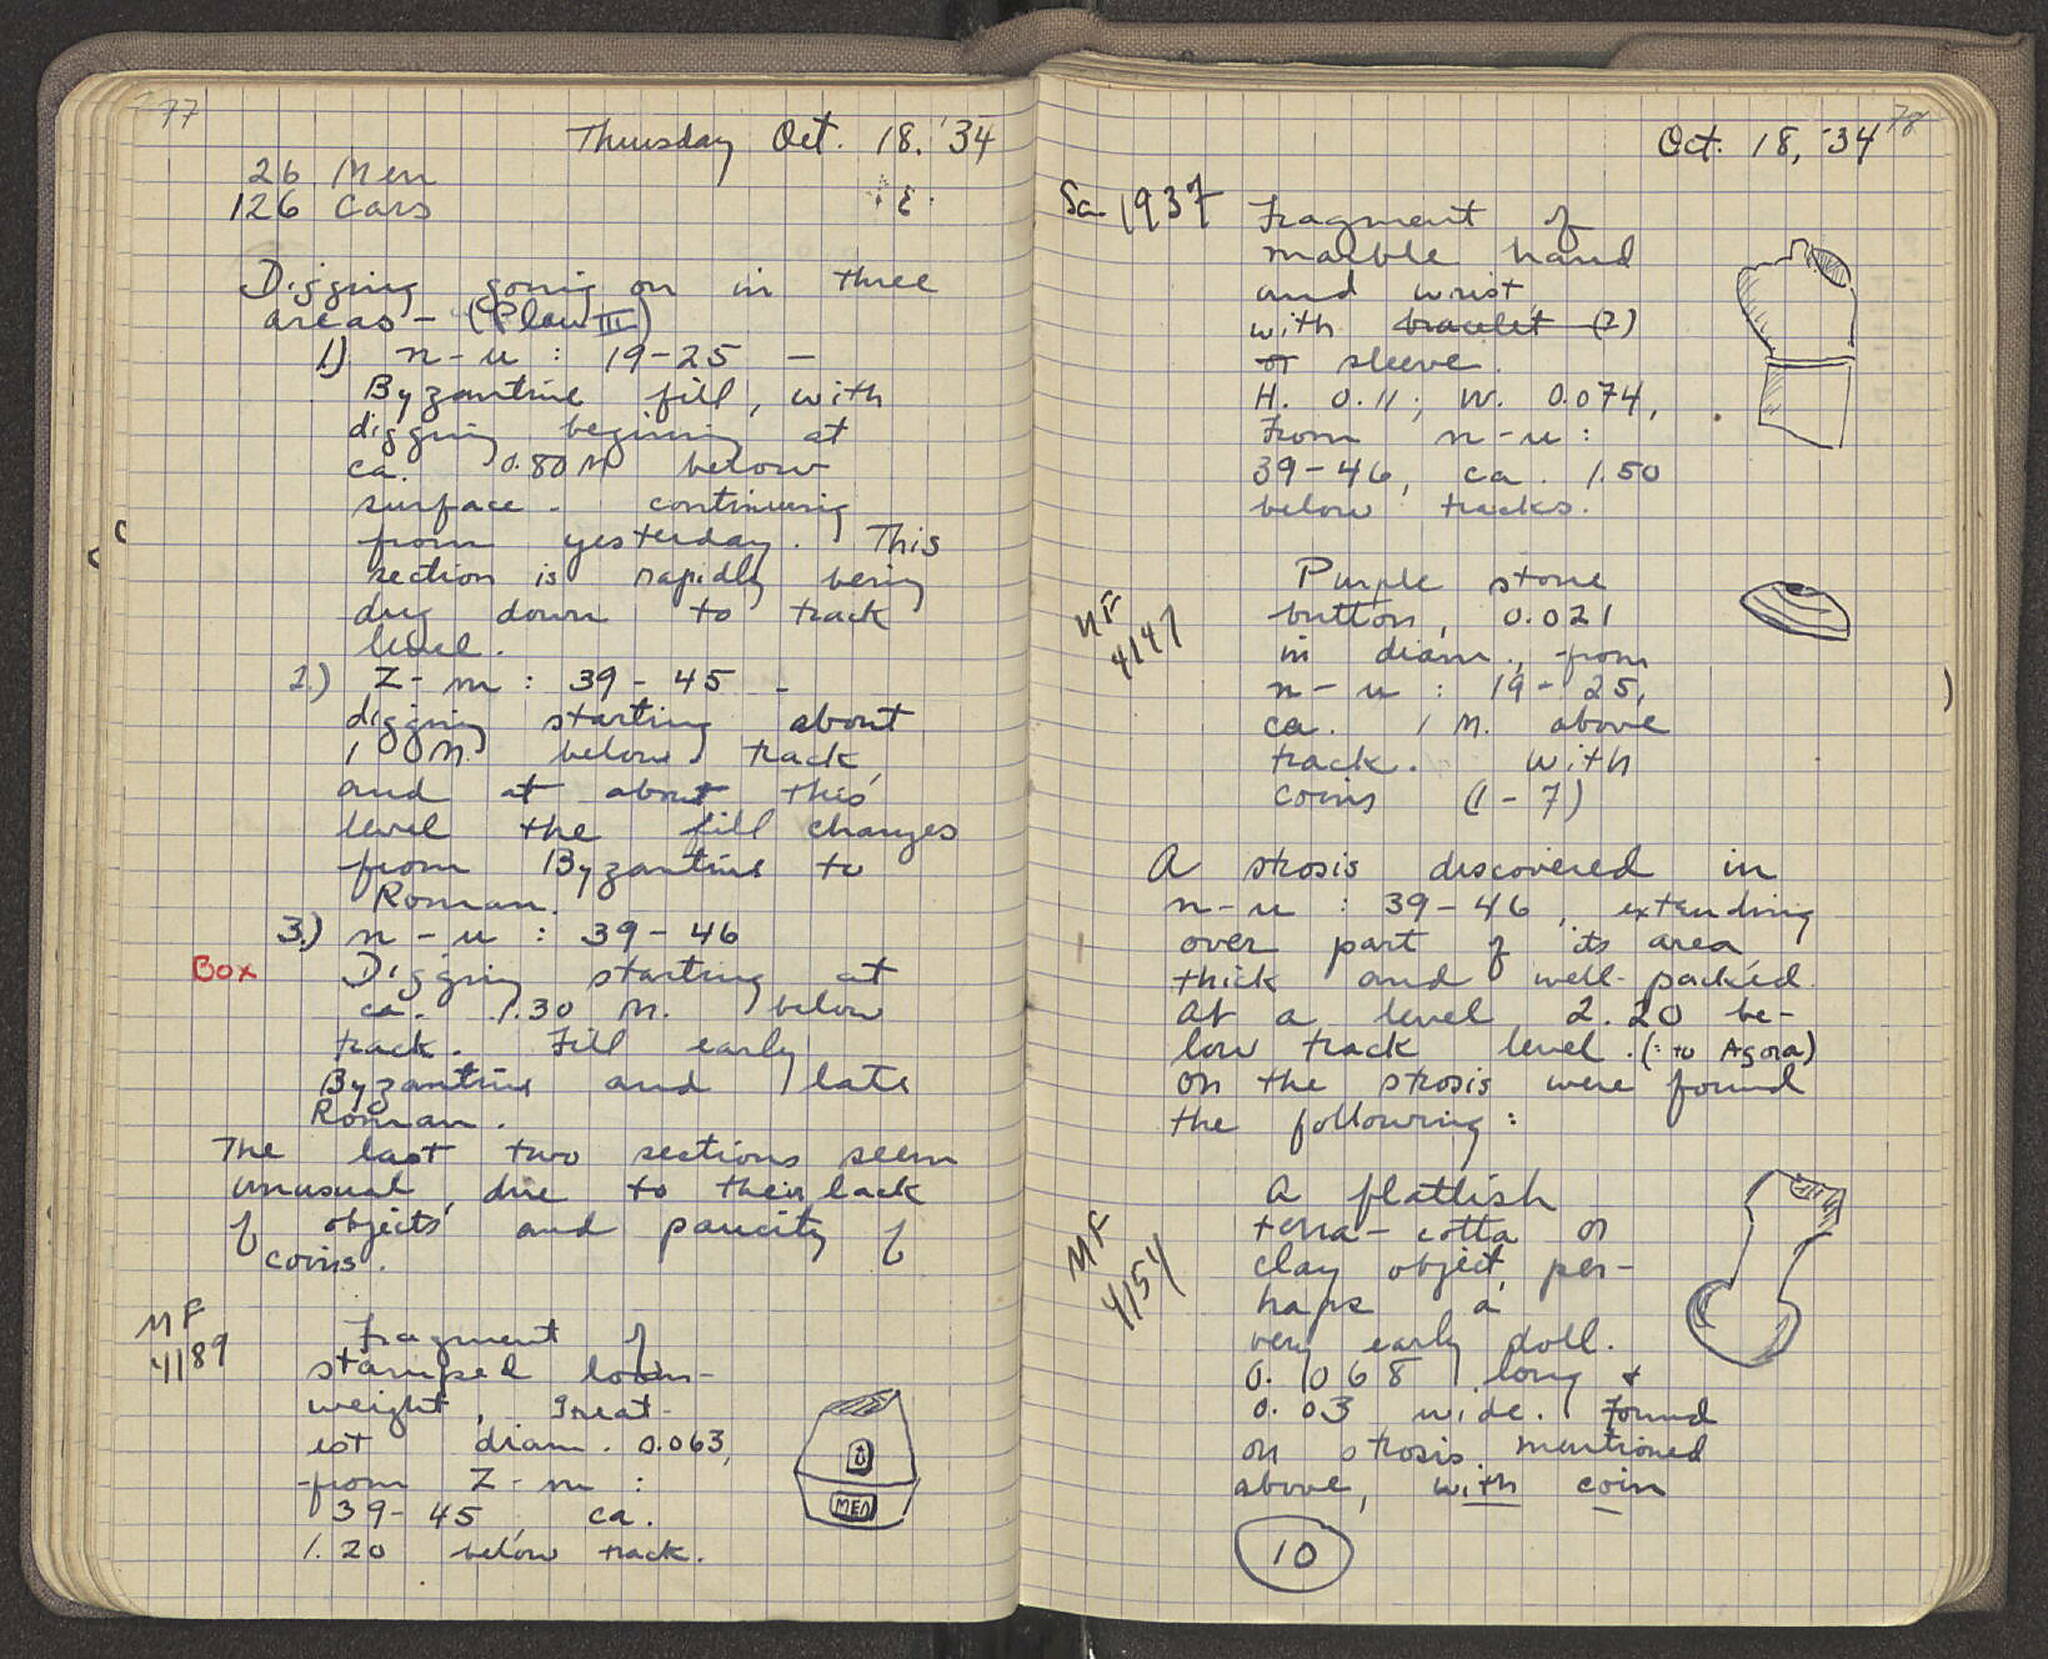 77
Thursday Oct. 18, '34
26 Men
126 Cars
Σ
Digging going on in three
areas - (Plan III)
1) n-u : 19-25 -
Byzantine fill, with
digging begining at
ca. 0.80 M below
surface. continuing
from yesterday. This
section is rapidly being
dug down to track
level.
2.) Z-m : 39-45 -
digging starting about
1 M. below track,
and at about this
level the fill changes
from Byzantine to
Roman.
3.) n-u : 39-46
Box Digging starting at
ca. 1.30 M. below
track. Fill early
Byzantine and late
Roman.
The last two sections seem
unusual, due to their lack
of objects and paucity of
coins.
MF
4189
Fragment of
stamped loom-
weight, Great-
est diam. 0.063,
from Z-m :
39-45, ca.
1.20 below track.
MEΛ
78
Oct. 18, '34
Sa- 1937 Fragment of
marble hand
and wrist,
with bracelet (?)
or sleeve.
H. 0.11; W. 0.074,
From n-u :
39-46, ca. 1.50
below tracks.
MF
4147
Purple stone
button, 0.021
in diam., from
n-u : 19-25,
ca. 1 M. above
track. with
coins (1-7)
A strosis discovered in
n-u : 39-46, extending
over part of its area,
thick and well-packed.
At a level 2.20 be-
low track level. (: to Agora)
On the strosis were found
the following :
MF
4154
A flattish
terra-cotta or
clay object, per-
haps a
very early doll.
0.068 long &
0.03 wide. Found
on strosis mentioned
above, with coin
10